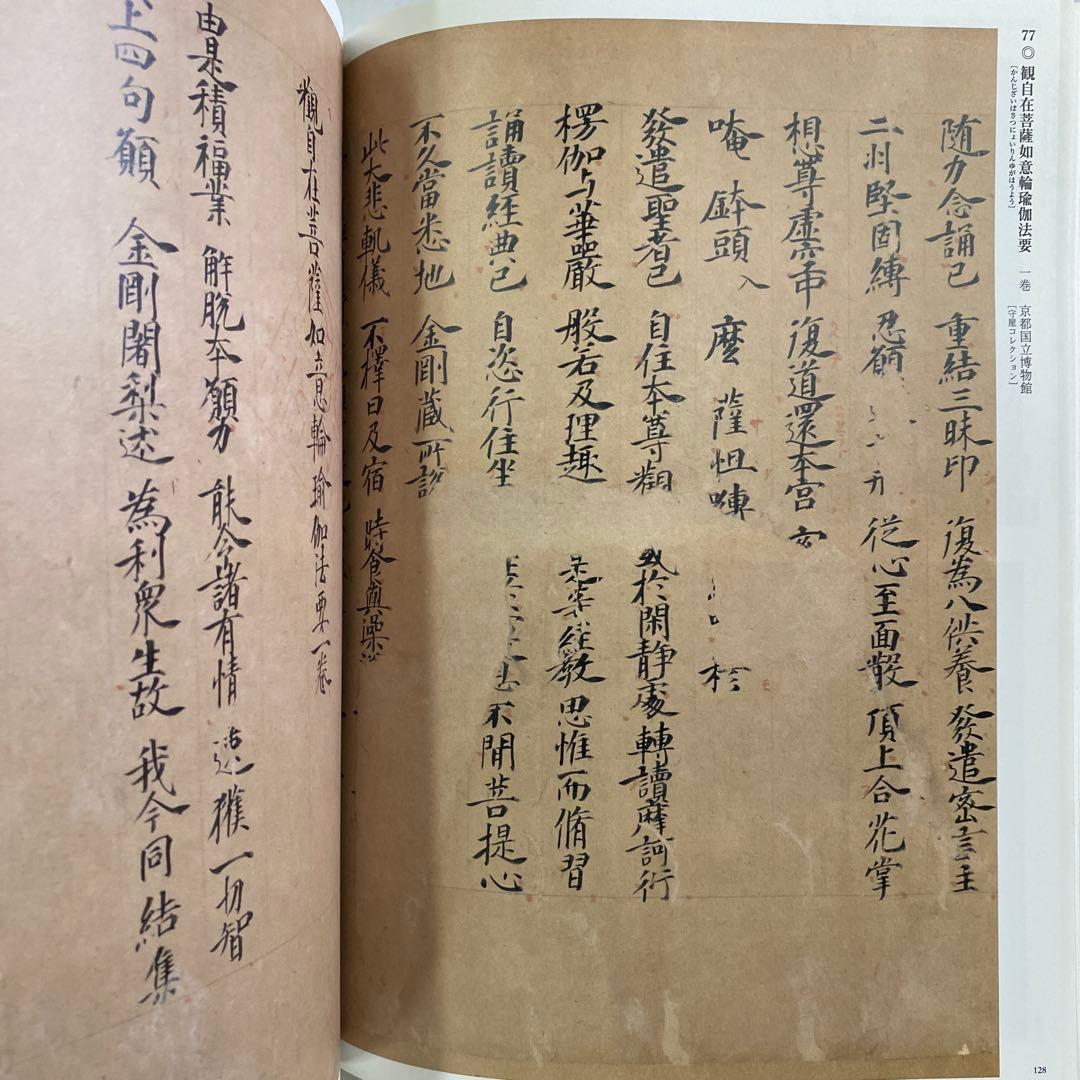 77◎観自在菩薩如意輪瑜伽法要 一巻 京都国立博物館
[かんじざいぼさつにょいりんゆがほうよう] [守屋コレクション]
随力念誦已 重結三昧印 復為八供養 發遣密言主
二羽堅固縛 忍願 従心至面散 頂上合花掌
想尊虚空中 復道還本宮
唵 鉢頭 入 麼 薩怛嚩 於
發遣聖者已 自住本尊觀 或於閑静處 轉讀摩訶衍
楞伽与華嚴 般若及理趣 如是等經教 思惟而脩習
誦讀經典已 自恣行住坐 不間菩提心
不久當悉地 金剛蔵所說
此大悲軌儀 不擇日及宿 時食與澡浴
觀自在菩薩如意輪瑜伽法要一卷
由是積福業 解脱本願力 能令諸有情 速獲一切智
上四句願 金剛闍梨述 為利衆生故 我今同結集
128